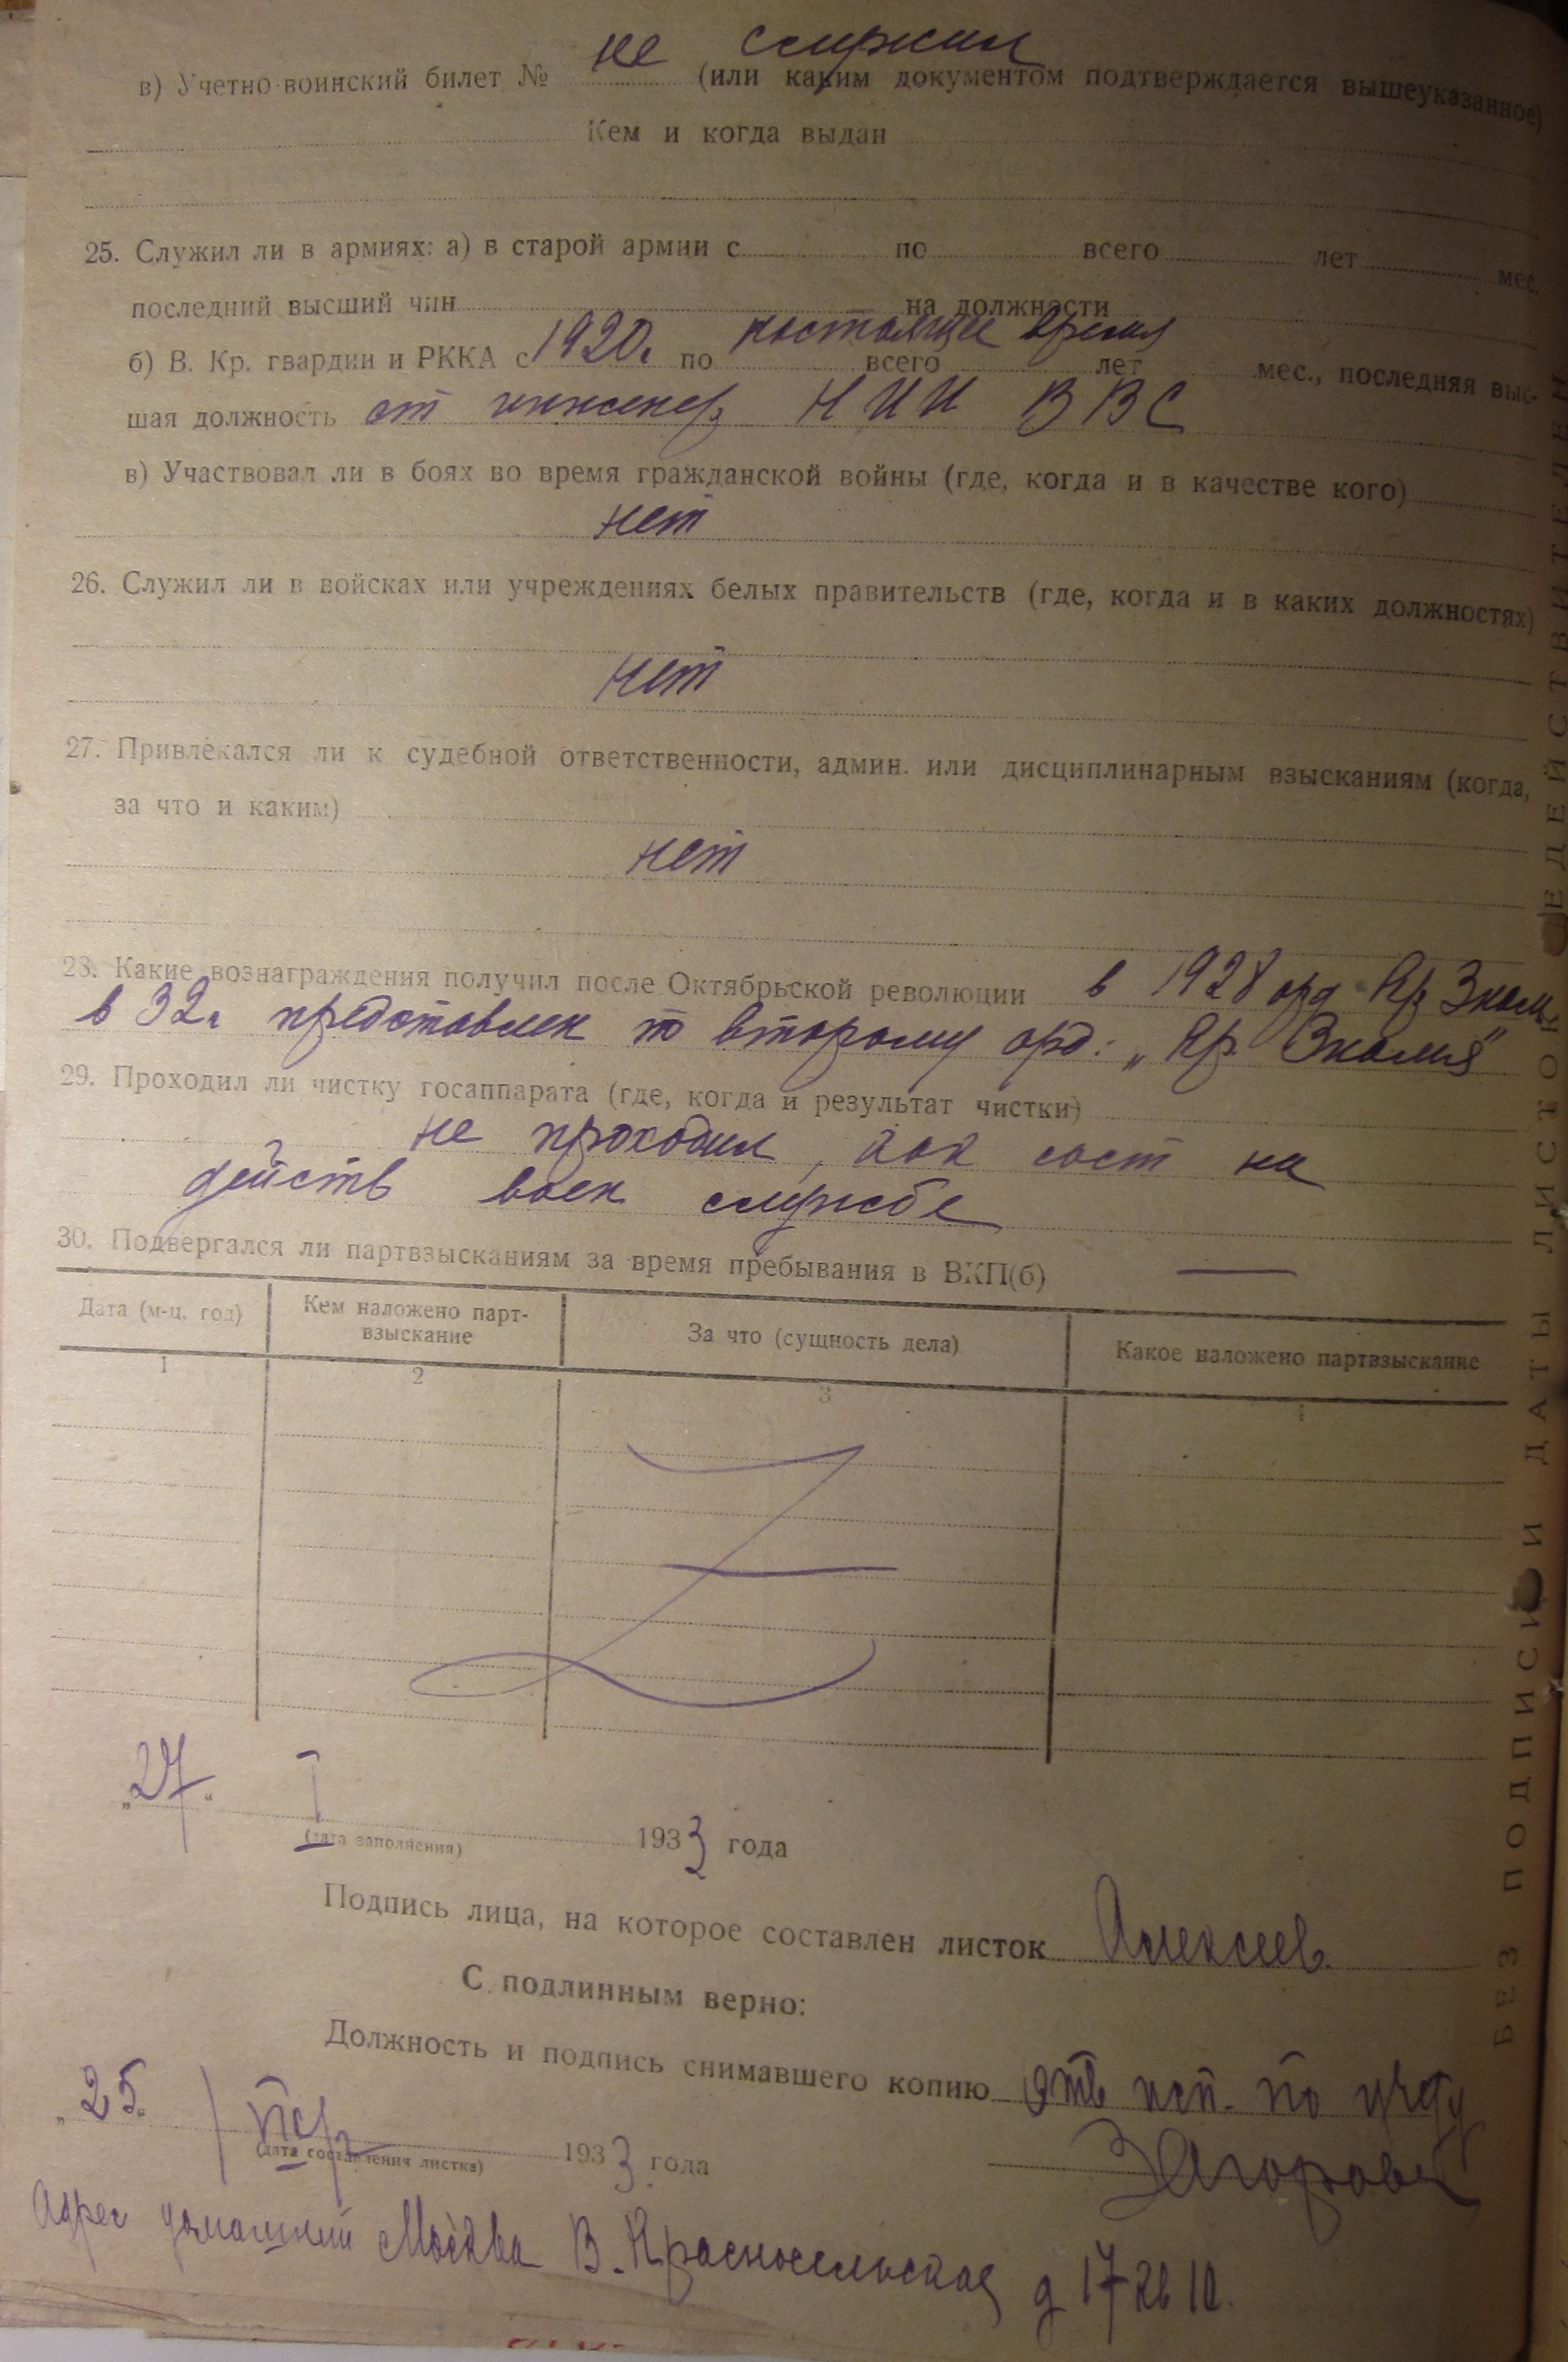 не служил
в) Учетно-воинский билет № (или каким документом подтверждается вышеуказанное)
Кем и когда выдан
25. Служил ли в армиях: а) в старой армии с по всего лет мес.
последний высший чин на должности
б) В. Кр. гвардии и РККА с 1920г. по настоящее время всего лет мес., последняя выс-
шая должность ст инженер НИИ ВВС
в) Участвовал ли в боях во время гражданской войны (где, когда и в качестве кого)
нет
26. Служил ли в войсках или учреждениях белых правительств (где, когда и в каких должностях)
нет
27. Привлекался ли к судебной ответственности, админ. или дисциплинарным взысканиям (когда,
за что и каким)
нет
28. Какие вознаграждения получил после Октябрьской революции в 1928 орд Кр Знам
в 32г представлен ко второму орд: „Кр. Знамя"
29. Проходил ли чистку госаппарата (где, когда и результат чистки)
не проходил, как сост на
действ воен службе
30. Подвергался ли партвзысканиям за время пребывания в ВКП(б) —
Дата (м-ц, год) Кем наложено парт-взыскание За что (сущность дела) Какое наложено партвзыскание
1 2 3 4
„27" I 1933 года
(дата заполнения)
Подпись лица, на которое составлен листок Алексеев
С подлинным верно:
Должность и подпись снимавшего копию Отв исп. по учету
„25" 1933 года
(дата составления листка)
Адрес домашний Москва В. Красносельская д 17 кв 10.
БЕЗ ПОДПИСИ И ДАТЫ ЛИСТОК НЕДЕЙСТВИТЕЛЕН